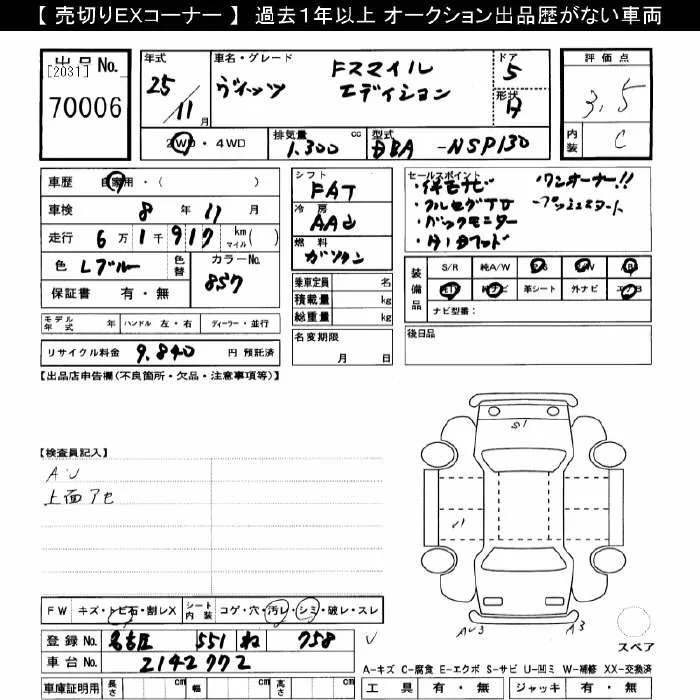 【 売切りEXコーナー 】 過去１年以上 オークション出品歴がない車両
出品 No.
[2031]
70006
年式
25/11 月
車名・グレード
ヴィッツ
Fスマイル
エディション
ドア
5
形状
評価点
3,5
内装
C
2WD・4WD
排気量
1.300 cc
型式
DBA -NSP130
車歴 自家用・( )
車検 8 年 11 月
走行 6 万 1 千 917 km マイル ( )
色 Lブルー 色替 カラーNo. 857
保証書 有・無
シフト
FAT
冷房
AAC
燃料
ガソリン
乗車定員 名
積載量 kg
総重量 kg
セールスポイント
・純正ナビ ・ワンオーナー!!
・フルセグTV ・プッシュスタート
・バックモニター
装備品
S/R 純A/W P/S P/W A/B
純TV 純ナビ 革シート 外ナビ エアB
ナビ型番：
モデル年式 年 ハンドル 左・右 ディーラー・並行
リサイクル料金 9.840 円 預託済
名変期限
月 日
後日品
【出品店申告欄(不良箇所・欠品・注意事項等)】
【検査員記入】
A・U
上面アセ
S1
FW キズ・トビ石・割レX シート内装 コゲ・穴・汚レ・シミ・破レ・スレ
登録 No. 名古屋 551 ね 758
車台 No. 2142772
AU3
A3
スペア
A-キズ C-腐食 E-エクボ S-サビ U-凹ミ W-補修 XX-交換済
車庫証明用 長さ cm 幅 cm 高さ cm
工具 有・無 ジャッキ 有・無